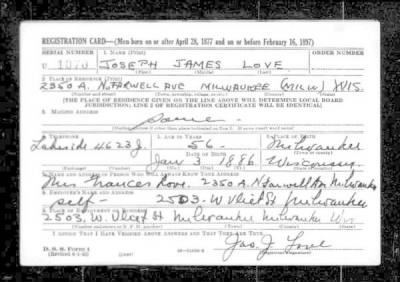 REGISTRATION CARD—(Men born on or after April 28, 1877 and on or before February 16, 1897)
SERIAL NUMBER 1. NAME (Print)
U 1070 JOSEPH JAMES LOVE
(First) (Middle) (Last)
2. PLACE OF RESIDENCE (Print)
2350 A. N. FARWELL AVE MILWAUKEE (MILW) WIS.
(Number and street) (Town, township, village, or city) (County) (State)
[THE PLACE OF RESIDENCE GIVEN ON THE LINE ABOVE WILL DETERMINE LOCAL BOARD
JURISDICTION; LINE 2 OF REGISTRATION CERTIFICATE WILL BE IDENTICAL]
3. MAILING ADDRESS
Same
4. TELEPHONE 5. AGE IN YEARS 6. PLACE OF BIRTH
Lakeside 4623 J. 56 Milwaukee
DATE OF BIRTH
Jan 3 1886 Wisconsin
7. NAME AND ADDRESS OF PERSON WHO WILL ALWAYS KNOW YOUR ADDRESS
Mrs Frances Love. 2350 A. N Farwell Ave Milwaukee
8. EMPLOYER'S NAME AND ADDRESS
self - 2503 - W Vliet St Milwaukee
9. PLACE OF EMPLOYMENT OR BUSINESS
2503. W. Vliet St Milwaukee Milwaukee Wis
(Number and street or R. F. D. number) (Town) (County) (State)
I AFFIRM THAT I HAVE VERIFIED ABOVE ANSWERS AND THAT THEY ARE TRUE.
D. S. S. Form 1
(Revised 4-1-42)
Jas. J Love
(Registrant's signature)